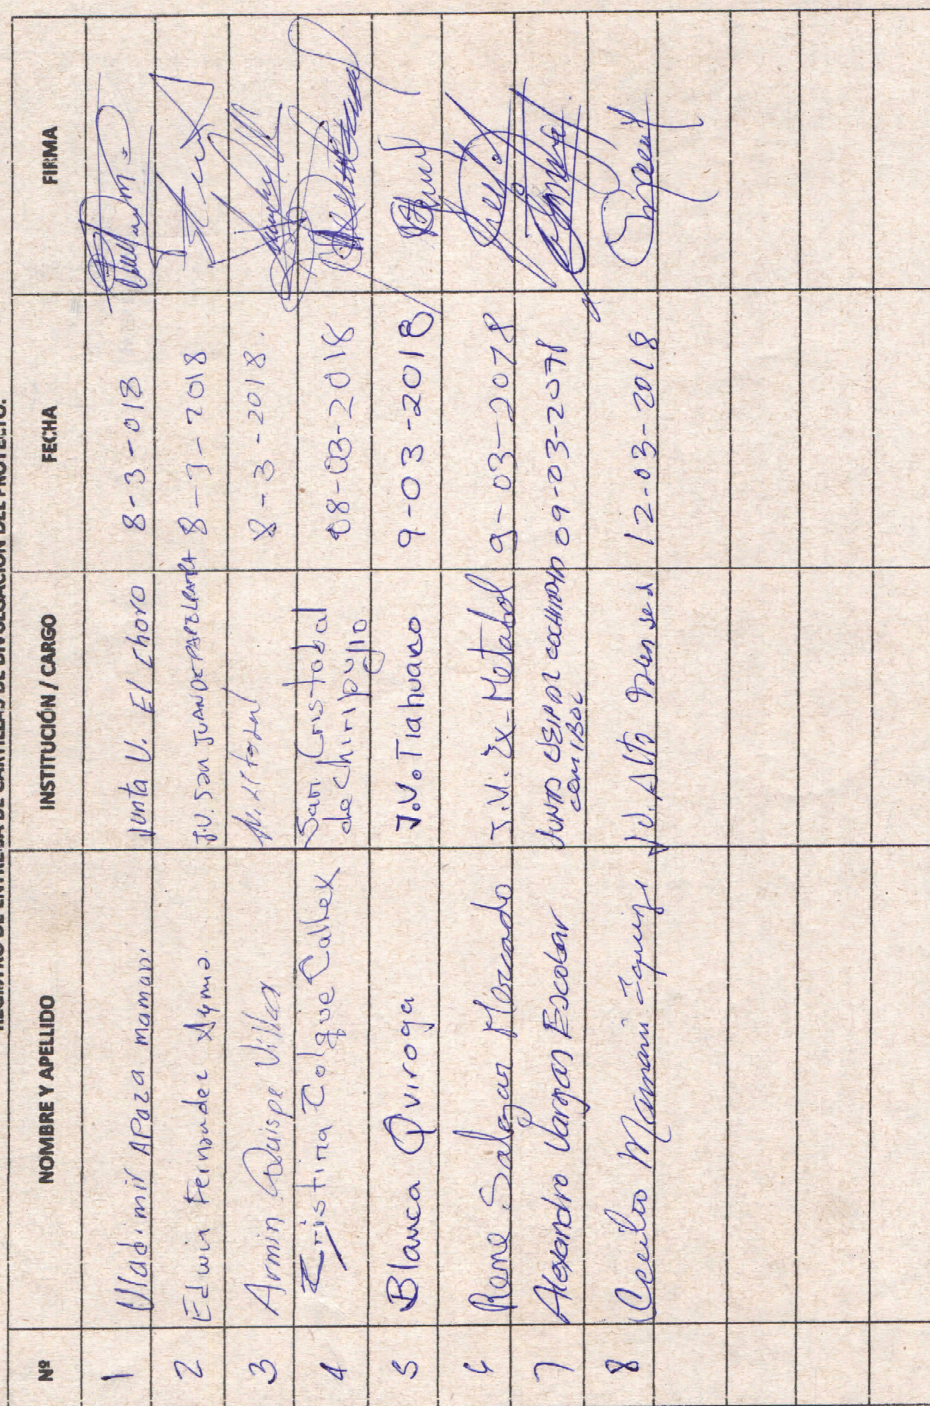 REGISTRO DE ENTREGA DE CARTILLAS DE DIVULGACIÓN DEL PROYECTO.
Nº NOMBRE Y APELIDO INSTITUCIÓN / CARGO FECHA FIRMA
1 Vladimir APaza mamani Junta V. El Choro 8-3-018
2 Edwin Fernandez Ayma J.V. San JUAN DE 8-3-2018
3 Armin Quispe Villca 8-3-2018.
4 Cristina Colque Callex San Cristobal 08-03-2018
de Chiripujio
5 Blanca Quiroga J.V. Tiahuaco 9-03-2018
6 Rene Salazar Mercado J.V. Ex-Metabol 9-03-2018
7 Alejandro Vargas Escobar 09-03-2018
COMIBOL
8 Cecilio Mamani J.V. Alto 12-03-2018